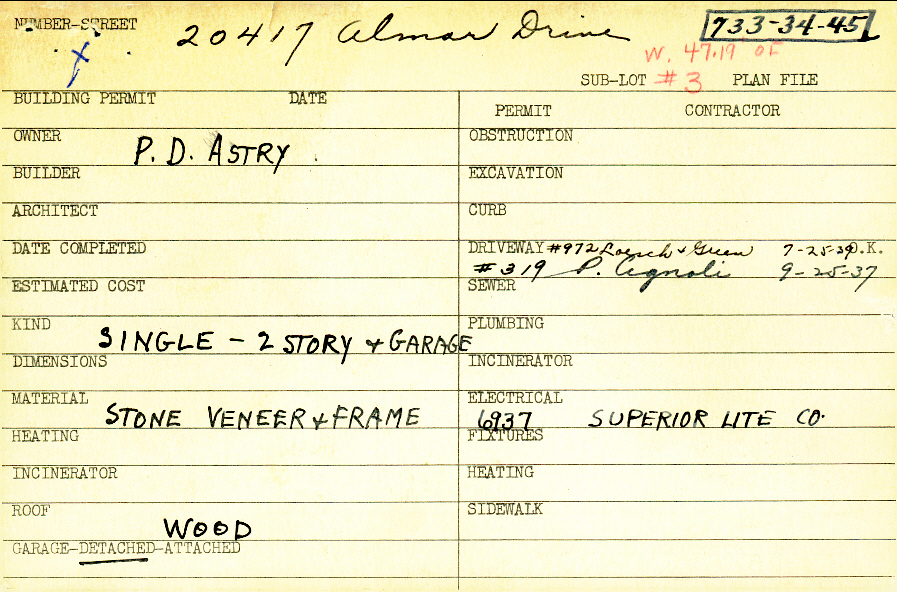 NUMBER-STREET 20417 Almar Drive 733-34-45
W. 47.19 OF
SUB-LOT #3 PLAN FILE
BUILDING PERMIT DATE
PERMIT CONTRACTOR
OWNER P. D. ASTRY
OBSTRUCTION
BUILDER
EXCAVATION
ARCHITECT
CURB
DATE COMPLETED
DRIVEWAY #972 Loesch & Green 7-25-39 O.K.
#319 P. Agnoli 9-25-37
ESTIMATED COST
SEWER
KIND SINGLE - 2 STORY & GARAGE
PLUMBING
DIMENSIONS
INCINERATOR
MATERIAL STONE VENEER & FRAME
ELECTRICAL
6937 SUPERIOR LITE CO.
HEATING
FIXTURES
INCINERATOR
HEATING
ROOF WOOD
SIDEWALK
GARAGE-DETACHED-ATTACHED